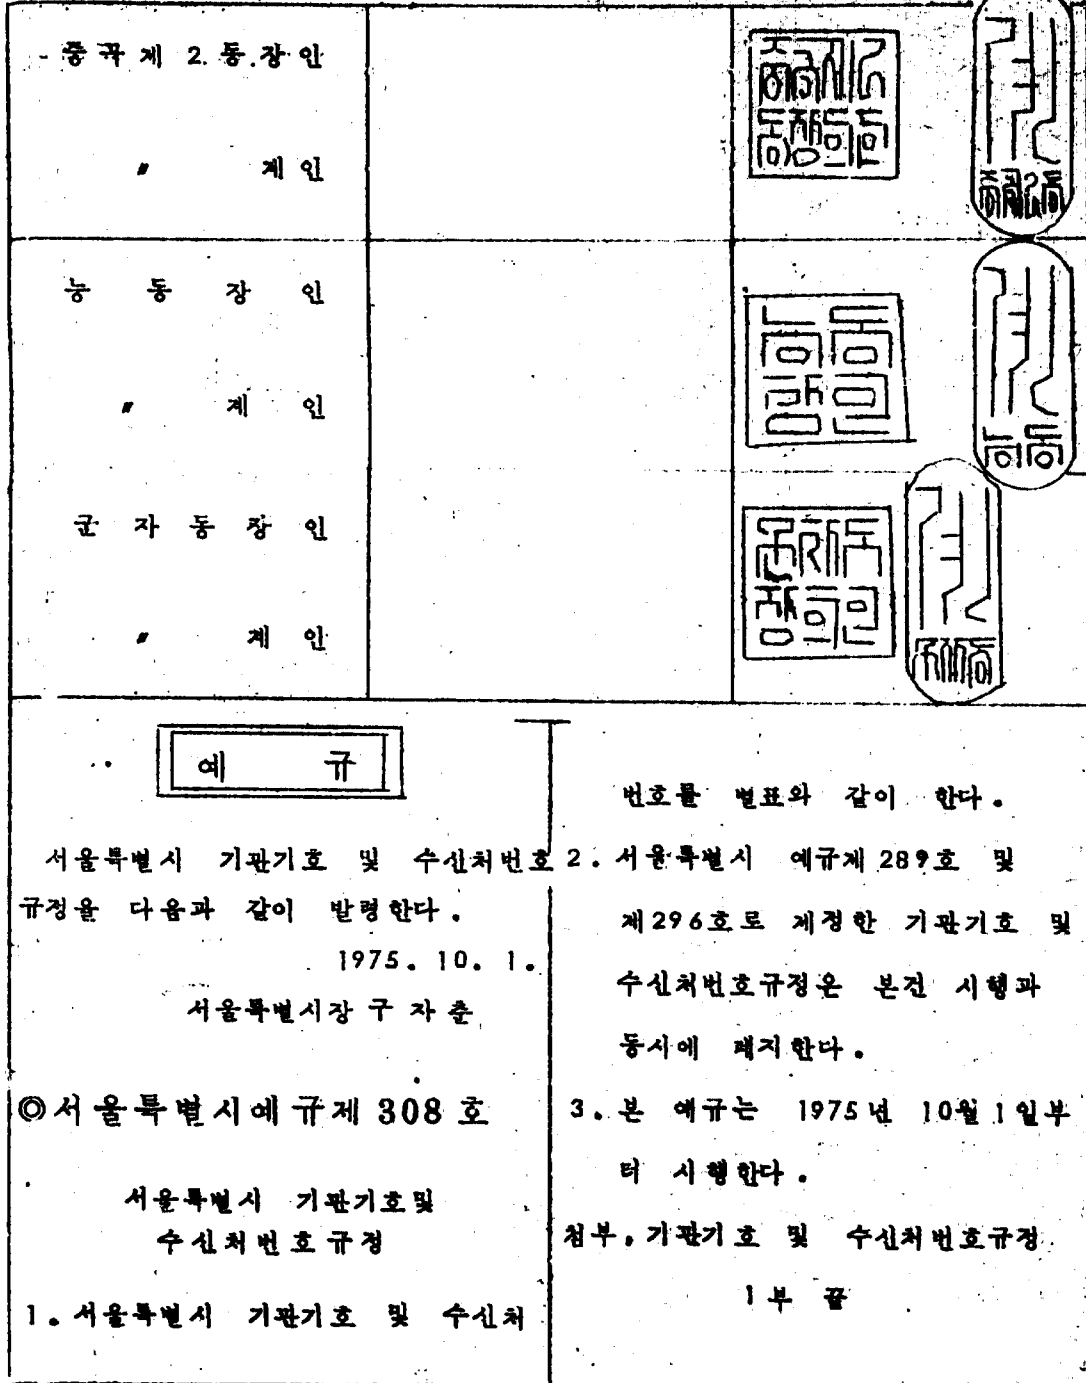 중곡제 2.동.장인
〃 계인
능 동 장 인
〃 계 인
군 자 동 장 인
〃 계 인
예 규
서울특별시 기관기호 및 수신처번호
규정을 다음과 같이 발령한다.
1975. 10. 1.
서울특별시장 구 자 춘
◎서울특별시예규제 308 호
서울특별시 기관기호및
수신처번호규정
1. 서울특별시 기관기호 및 수신처
번호를 별표와 같이 한다.
2. 서울특별시 예규제 289호 및
제296호로 제정한 기관기호 및
수신처번호규정은 본건 시행과
동시에 폐지한다.
3. 본 예규는 1975년 10월 1일부
터 시행한다.
첨부. 기관기호 및 수신처번호규정
1부 끝